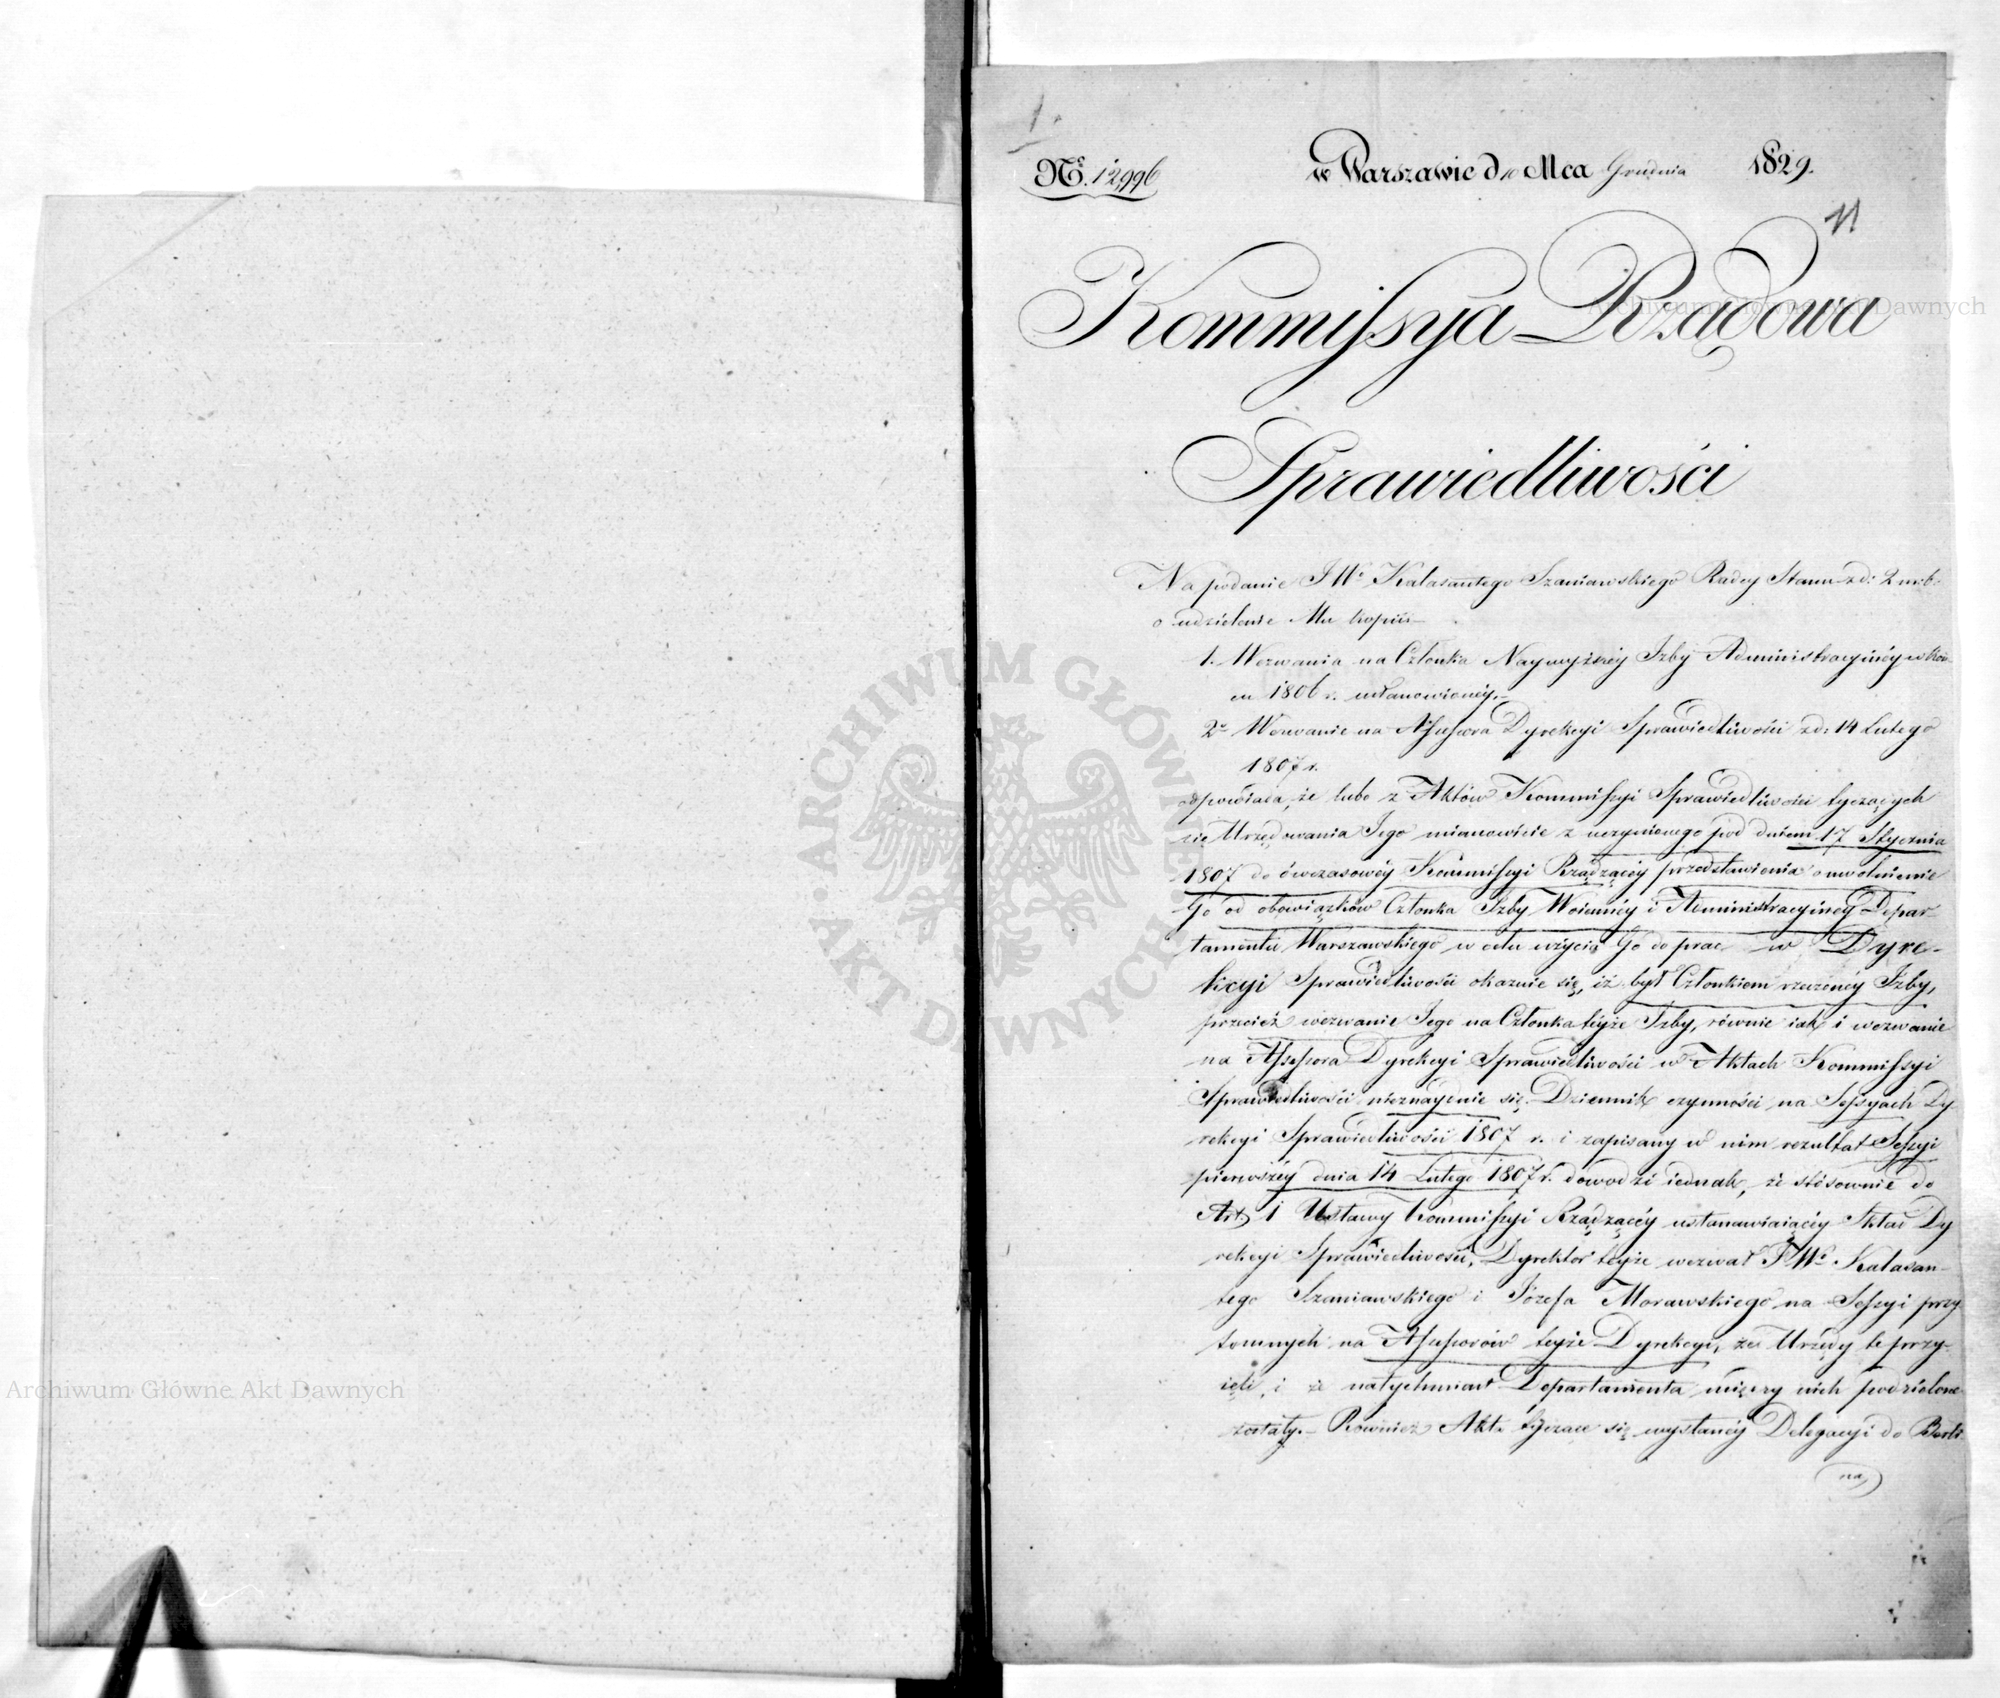 1.
No. 12,996
w Warszawie d 10 Mca Grudnia 1829.
11
Kommissya Rządowa
Sprawiedliwości
Na podanie JWo Kalasantego Szaniawskiego Radcy Stanu z d: 2 m.b.
o udzielenie Mu kopii
1. Wezwania na Członka Naywyższéy Izby Administracyinéy w
1806 r. ustanowionéy.
2o Wezwanie na Assessora Dyrekcyi Sprawiedliwości z d: 14 Lutego
1807 r.
odpowiada, że lubo z Aktów Kommissyi Sprawiedliwości tyczących
się Urzędowania Jego mianowicie z uczynionego pod dniem 17 Stycznia
1807 do ówczasowéy Kommissyi Rządzącéy przedstawienia o uwolnienie
Go od obowiązków Członka Izby Woienney i Administracyiney Depar-
tamentu Warszawskiego w celu użycia Go do prac w Dyre-
kcyi Sprawiedliwości okazuie się, iż był Członkiem rzeczonéy Izby,
przecież wezwanie Jego na Członka teyże Izby, równie iak i wezwanie
na Assessora Dyrekcyi Sprawiedliwości w Aktach Kommissyi
Sprawiedliwości nieznayduie się. Dziennik czynności na Sessyach Dy
rekcyi Sprawiedliwości 1807 r. i zapisany w nim rezultat Sessyi
pierwszéy dnia 14 Lutego 1807 r. dowodzi iednak, że stósownie do
Art. 1 Ustawy Kommissyi Rządzącéy ustanawiaiącéy Skład Dy
rekcyi Sprawiedliwości, Dyrektor teyże wezwał JWo Kalasan-
tego Szaniawskiego i Józefa Morawskiego na Sessyi przy
tomnych na Assessorów teyże Dyrekcyi, że Urzędy te przy-
ięli, i że natychmiast Departamenta między nich podzielone
zostały. - Również Akta tyczące się wysłanéy Delegacyi do Berli
na,
Archiwum Główne Akt Dawnych
ARCHIWUM GŁÓWNE AKT DAWNYCH
Archiwum Główne Akt Dawnych